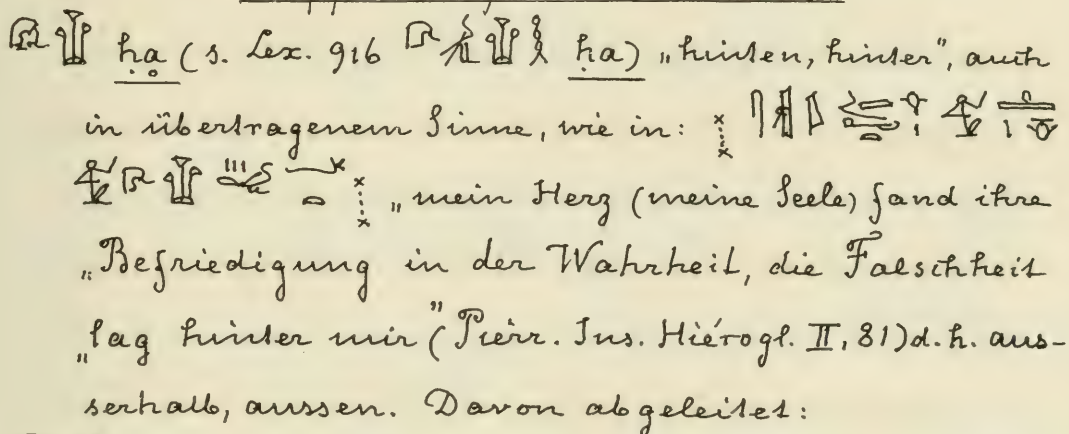 ḥạ (s. Lex. 916 ḥa) „hinten, hinter", auch
in übertragenem Sinne, wie in:
„mein Herz (meine Seele) fand ihre
„Befriedigung in der Wahrheit, die Falschheit
„lag hinter mir" (Pierr. Ins. Hiérogl. II, 81) d. h. aus-
serhalb, aussen. Davon abgeleitet: